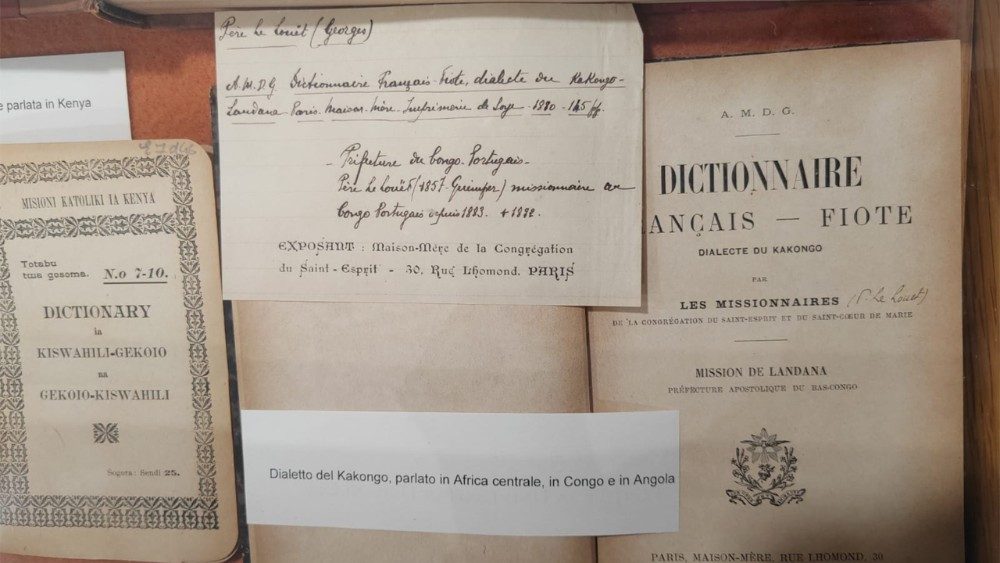 e parlata in Kenya
MISIONI KATOLIKI IA KENYA
Totabu
tuse gosoma. N.o 7-10.
DICTIONARY
ia
KISWAHILI-GEKOIO
na
GEKOIO-KISWAHILI
Sogora: Sendi 25.
Père Le Louët (Georges)
A.M.D.G. Dictionnaire Français-Fiote, dialecte du Kakongo-
Landana. Paris. Maison-Mère. Imprimerie de Soye. 1890 - 145 ff.
- Préfecture du Congo-Portugais-
Père Le Louët (1857. Quimper) missionnaire au
Congo Portugais depuis 1883. + 1892.
EXPOSANT : Maison-Mère de la Congrégation
du Saint-Esprit - 30, Rue Lhomond, PARIS
Dialetto del Kakongo, parlato in Africa centrale, in Congo e in Angola
A. M. D. G.
DICTIONNAIRE
ANÇAIS — FIOTE
DIALECTE DU KAKONGO
PAR
LES MISSIONNAIRES (P. Le Louet)
DE LA CONGRÉGATION DU SAINT-ESPRIT ET DU SAINT-CŒUR DE MARIE
MISSION DE LANDANA
PRÉFECTURE APOSTOLIQUE DU BAS-CONGO
PARIS, MAISON-MÈRE, RUE LHOMOND, 30